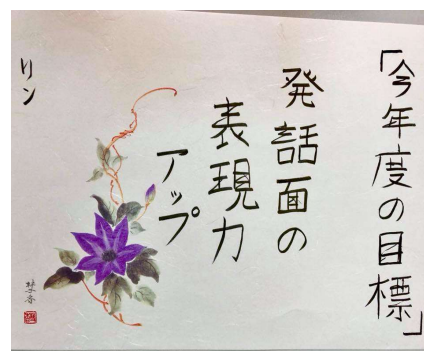 「今年度の目標」
発話面の
表現力
アップ
リン